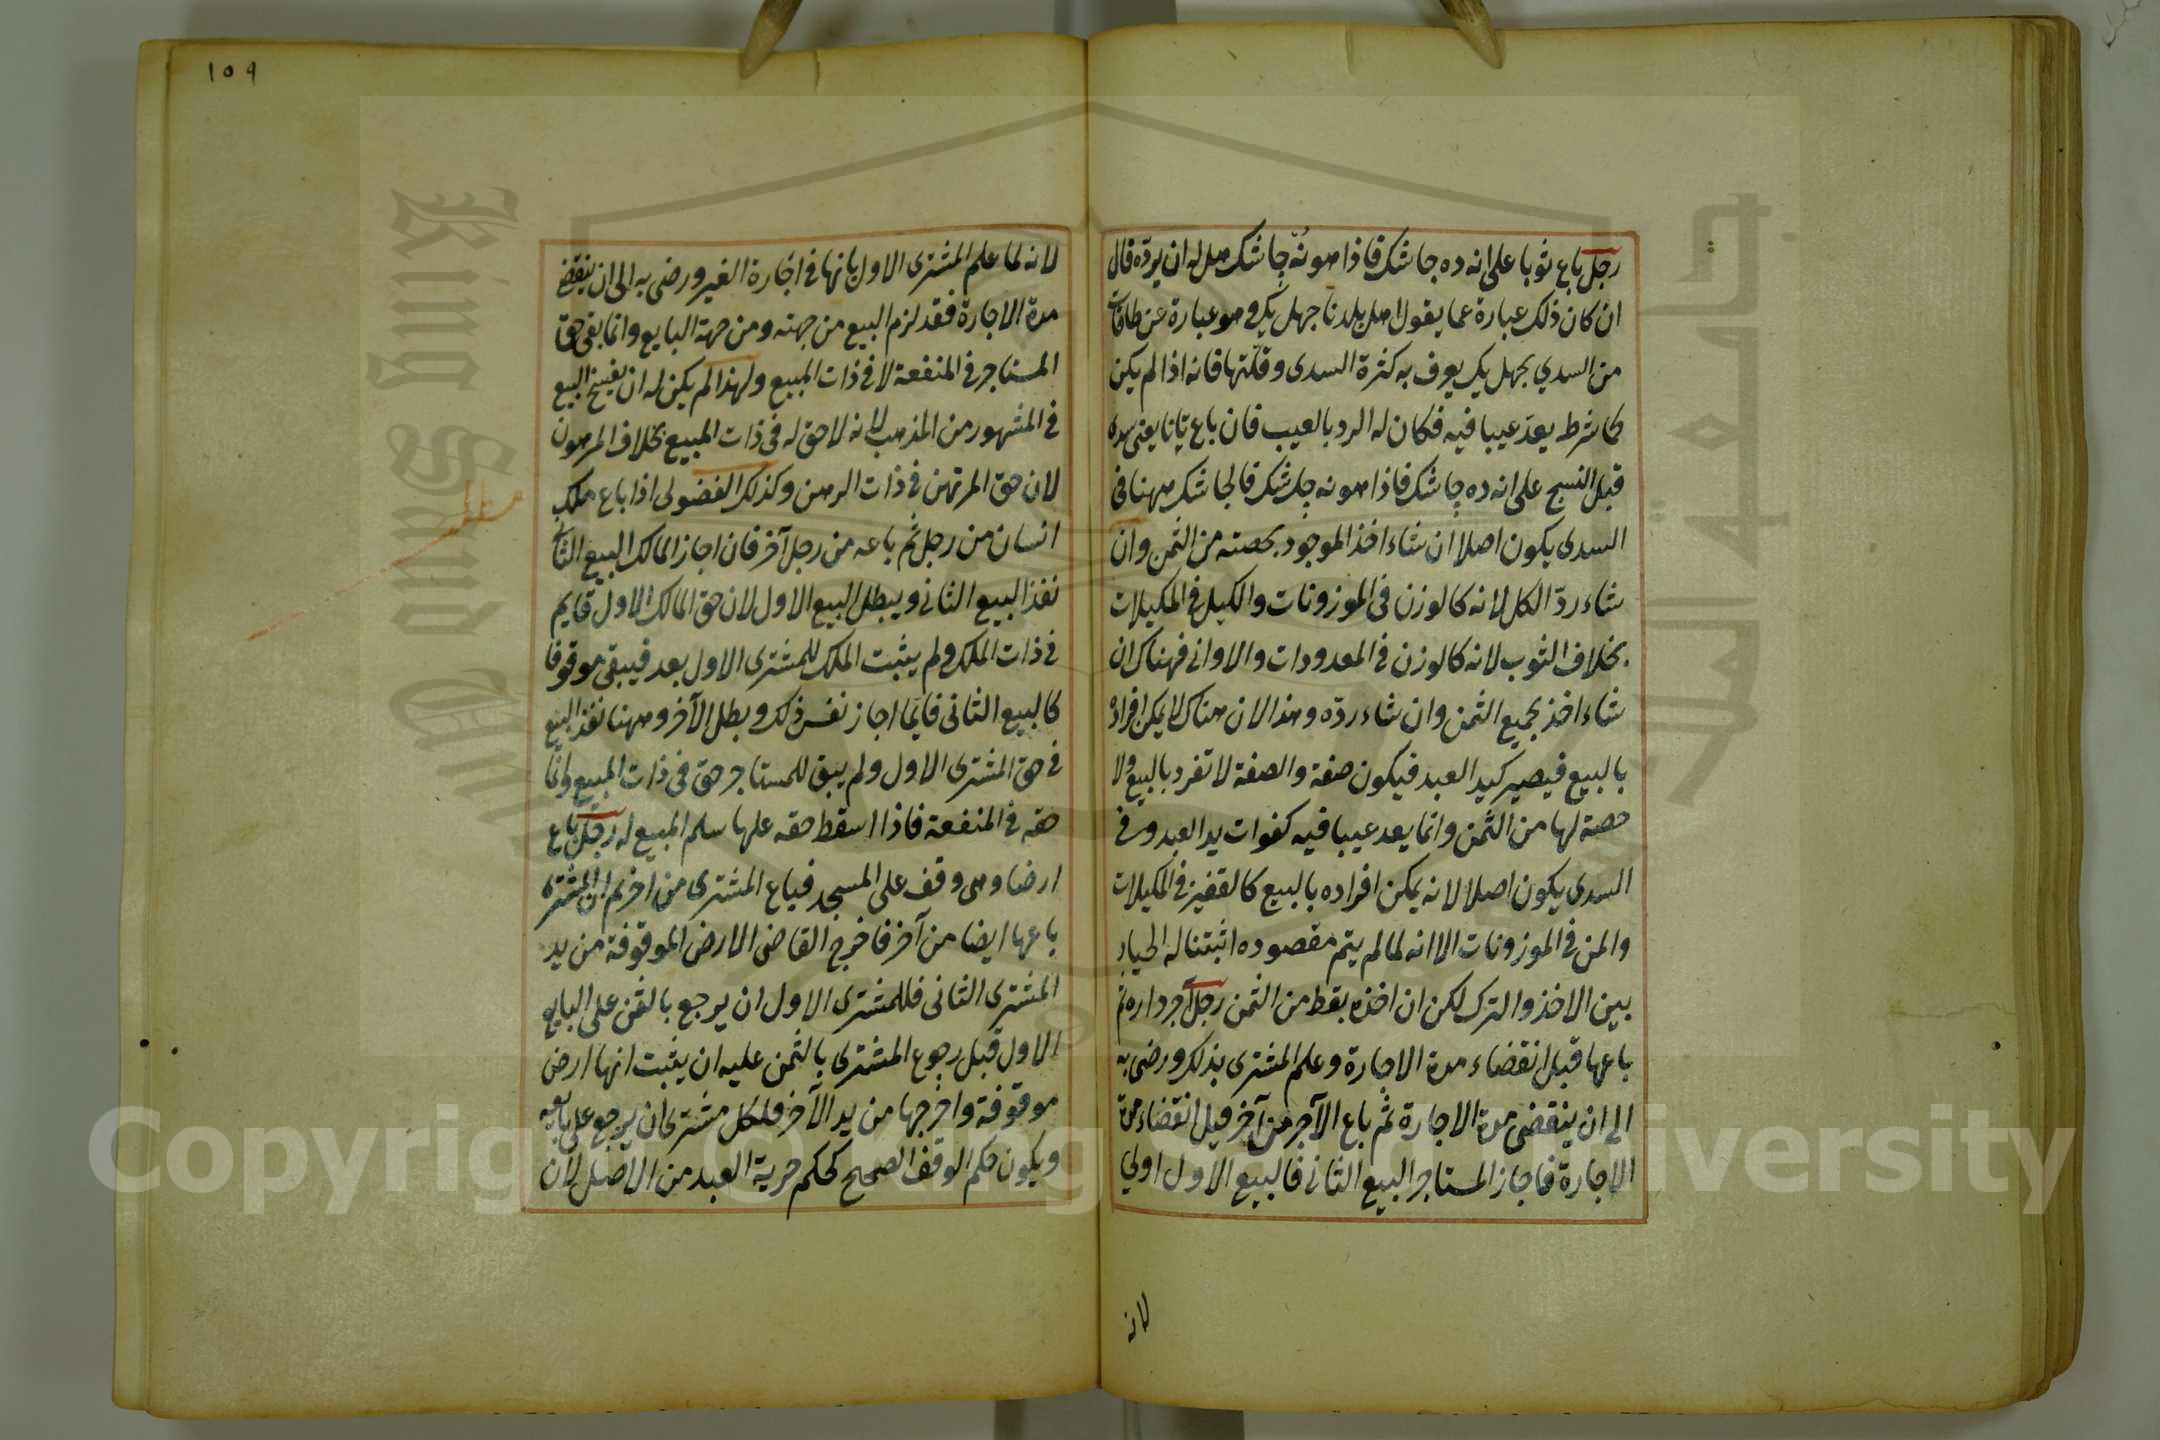 رجل باع ثوبا على انه ده جاشك فاذا هو نه جاشك هل له ان يرده قال
ان كان ذلك عبارة عما يقول اهل بلدنا جهل يك وهو عبارة عن طاقات
من السدي بجهل يك يعرف به كثرة السدى وقلتها فانه اذا لم يكن
كما شرط يعد عيبا فيه فكان له الرد بالعيب فان باع تانا يعنى سدى
قبل النسج على انه ده جاشك فاذا هو نه جاشك فالجاشك ههنا فى
السدى يكون اصلا ان شاء اخذ الموجود بحصته من الثمن وان
شاء رد الكل لانه كالوزن فى الموزونات والكيل فى المكيلات
بخلاف الثوب لانه كالوزن فى المعدودات والاوانى فهناك ان
شاء اخذ بجميع الثمن وان شاء رده وهذا لان هناك لا يمكن افراده
بالبيع فيصير كيد العبد فيكون صفة والصفة لا تفرد بالبيع ولا
حصة لها من الثمن وانما يعد عيبا فيه كفوات يد العبد وفى
السدى يكون اصلا لانه يمكن افراده بالبيع كالقفيز فى المكيلات
والمن فى الموزونات الا انه لما لم يتم مقصوده اثبتنا له الخيار
بين الاخذ والترك لكن ان اخذه يقط من الثمن رجل آجر داره ثم
باعها قبل انقضاء مدة الاجارة وعلم المشترى بذلك ورضى به
الى ان ينقضى مدة الاجارة ثم باع الآجر من آخر قبل انقضاء مدة
الاجارة فاجاز المستاجر البيع الثانى فالبيع الاول اولى
لانه
١٥٩
لانه لما علم المشترى الاول بانها فى اجارة الغير ورضى به الى ان ينقضى
مدة الاجارة فقد لزم البيع من جهته ومن جهة البايع وانما بقى حق
المستاجر فى المنفعة لا فى ذات المبيع ولهذا لم يكن له ان يفسخ البيع
فى المشهور من المذهب لانه لا حق له فى ذات المبيع بخلاف المرهون
لان حق المرتهن فى ذات الرهن وكذلك الفضولى اذا باع ملك
انسان من رجل ثم باعه من رجل آخر فان اجاز المالك البيع الثانى
نفذ البيع الثانى ويبطل البيع الاول لان حق المالك الاول قايم
فى ذات الملك ولم يثبت الملك للمشترى الاول بعد فيبقى موقوفا
كالبيع الثانى فايما اجاز نفس ذلك وبطل الآخر وههنا نفذ البيع
فى حق المشترى الاول ولم يبق للمستاجر حق فى ذات المبيع وانما
حقه فى المنفعة فاذا اسقط حقه علها سلم المبيع له رجل باع
ارضا وهى وقف على المسجد فباع المشترى من اخر ثم ان المشترى
باعها ايضا من آخر فاخرج القاضى الارض الموقوفة من يد
المشترى الثانى فللمشترى الاول ان يرجع بالثمن على البايع
الاول قبل رجوع المشترى بالثمن عليه ان يثبت انها ارض
موقوفة واخرجها من يد الآخر فلكل مشترى ان يرجع على بايعه
ويكون حكم الوقف الصحيح كحكم حرية العبد من الاصل لان